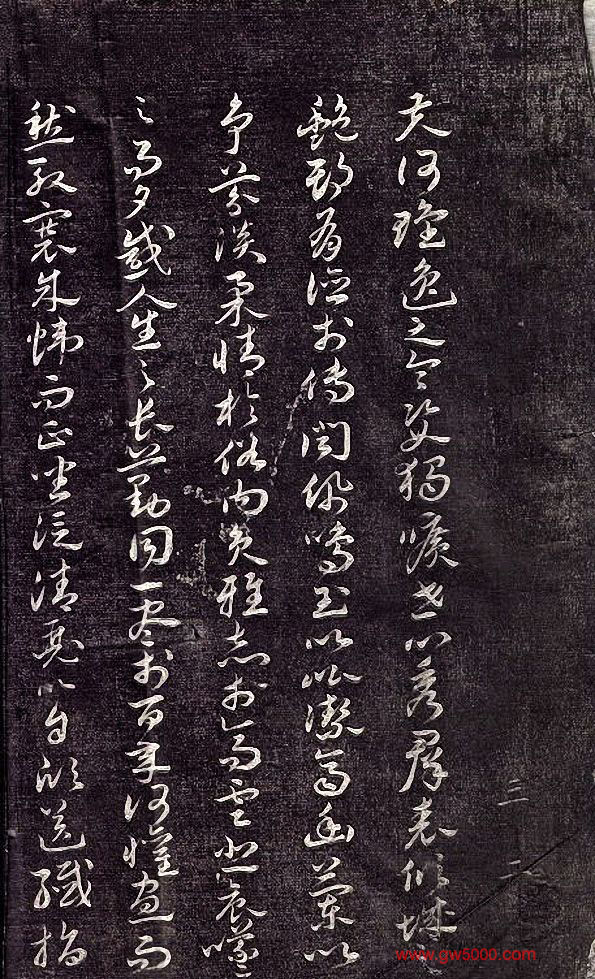 夫何瓌逸之令姿獨曠世以秀群表傾城
艷期有德於傳聞佩鳴玉以比潔齊幽蘭以
爭芬淡柔情於俗內負雅志於高雲悲晨曦
之易夕感人生之長勤同一盡於百年何懽寡而
愁殷褰朱幃而正坐泛清瑟以自欣送纖指
www.gw5000.com